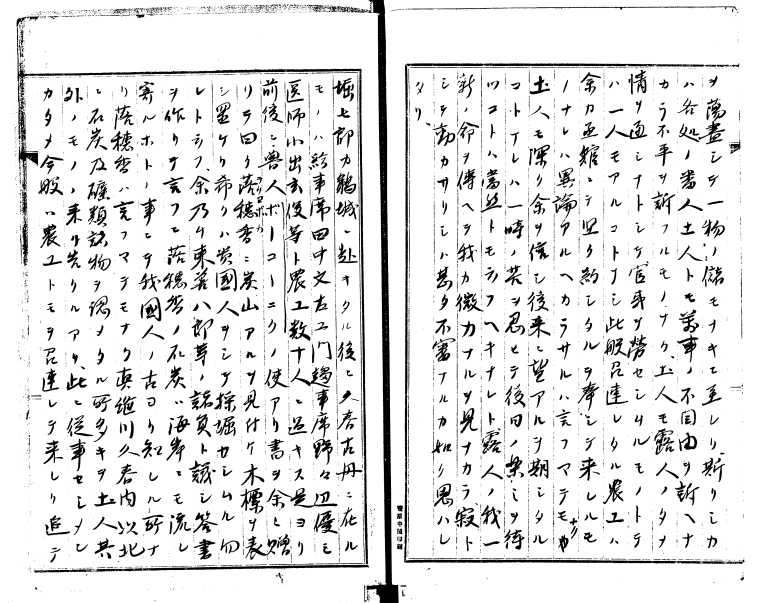 ヲ蕩盡シテ一物ノ儲モナキニ至レリ斯クシカ
ハ各処ノ番人土人トモ萬事ノ不自由ヲ訴ヘナ
カラ不平ヲ訴フルモノナク土人モ露人ノタメ
情ヲ通シナトシテ官事ヲ労セシムルモノトテ
ハ一人モアルコトナシ此般召連レタル農工ハ
余カ函館ニテ堅ク約シタルヲ奉シテ来レルモ
ノナレハ異論アルヘカラサルハ言フマテモナク
土人モ深ク余ヲ信シ後来ニ望アルヲ期シタル
コトナレハ一時ノ苦ヲ忍ヒテ後日ノ楽ミヲ待
ツコトハ當然トモ云フヘキナレト露人ノ我一
新ノ命ヲ傳ヘテ我カ微力ナルヲ見ナカラ寂ト
シテ動カサリシハ甚タ不審ナルカ如ク思ハレ
タリ
堀七郎カ鵜城ニ赴キタル後ニ久春古丹ニ在ル
モノハ給事席田中文右エ門趨事席野々辺優ミ
医師小出玄俊等ト農工数十人ニ過キス是ヨリ
前後ニ魯人ボーコーニクノ使アリ書ヲ余ニ贈
リテ曰ク落穂香ニ炭山アルヲ見付ケ木標ヲ表
シ置ケリ希クハ貴國人ヲシテ採堀カシムル勿
レト云フ余乃チ東善八郎等ノ諸員ト議シ答書
ヲ作リテ言フニ落穂香ノ石炭ハ海岸ニモ流レ
寄ルホトノ事ニテ我國人ノ古ヨリ知レル所ナ
リ落穂香ハ言フマテモナク真縫川久春内以北
ニ石炭及礦類諸物ヲ認メタル所多キヲ土人共
外ノモノノ来リ告クルアリ此ニ従事セシメン
カタメ今般ハ農工トモヲ召連レテ来レリ追テ